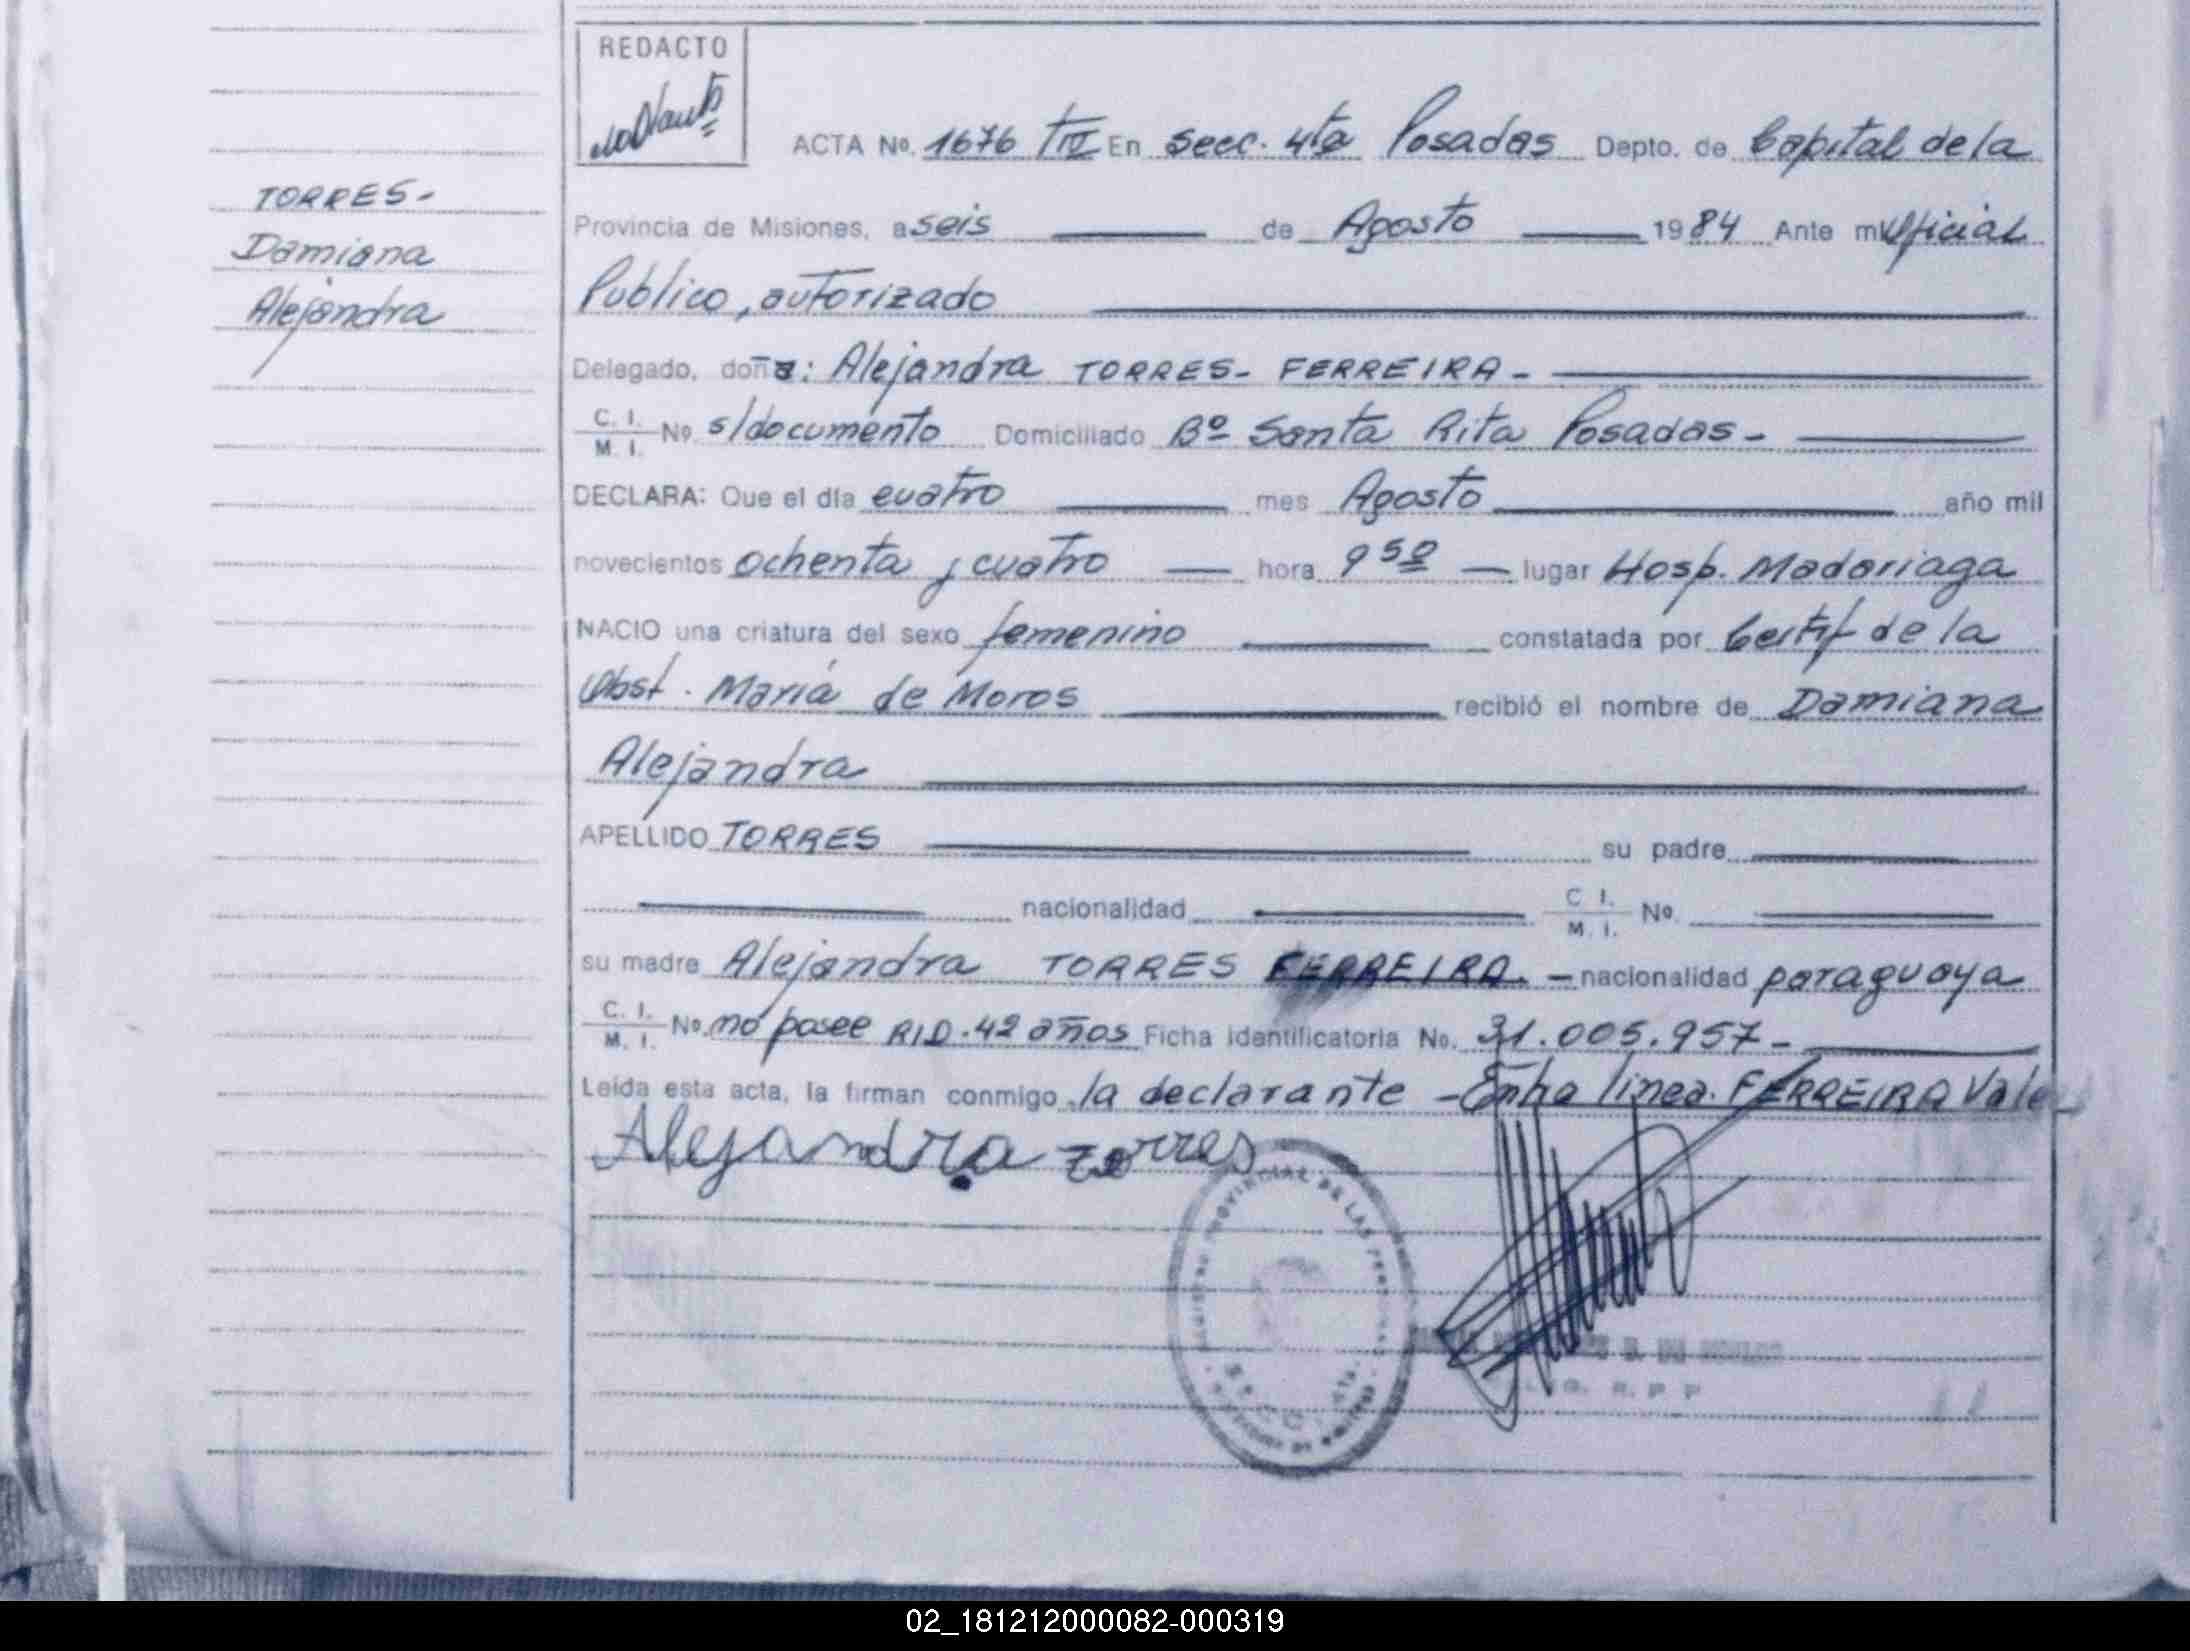 REDACTO
ACTA Nº. 1676 TIV En Secc. 4ta Posadas Depto. de Capital de la
TORRES-
Damiana
Alejandra
Provincia de Misiones, a seis de Agosto 1984 Ante mi Oficial
Publico, autorizado
Delegado, doña: Alejandra TORRES- FERREIRA-
C. I. M. I. Nº s/documento Domiciliado Bº Santa Rita Posadas-
DECLARA: Que el día cuatro mes Agosto año mil
novecientos ochenta y cuatro hora 9 50 lugar Hosp. Madariaga
NACIO una criatura del sexo femenino constatada por Certif de la
Obst. María de Moros recibió el nombre de Damiana
Alejandra
APELLIDO TORRES su padre
nacionalidad C I. M. I. Nº
su madre Alejandra TORRES FERREIRA.- nacionalidad paraguaya
C. I. M. I. Nº no posee RID. 42 años Ficha identificatoria No. 31.005.957-
Leída esta acta, la firman conmigo la declarante - Entre linea. FERREIRA Vale
Alejandra Torres
PROVINCIAL DE LAS PERSONAS
02_181212000082-000319